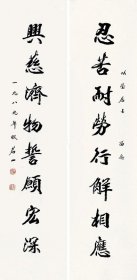 忍苦耐勞行解相應
興慈濟物誓願宏深
一九八九年